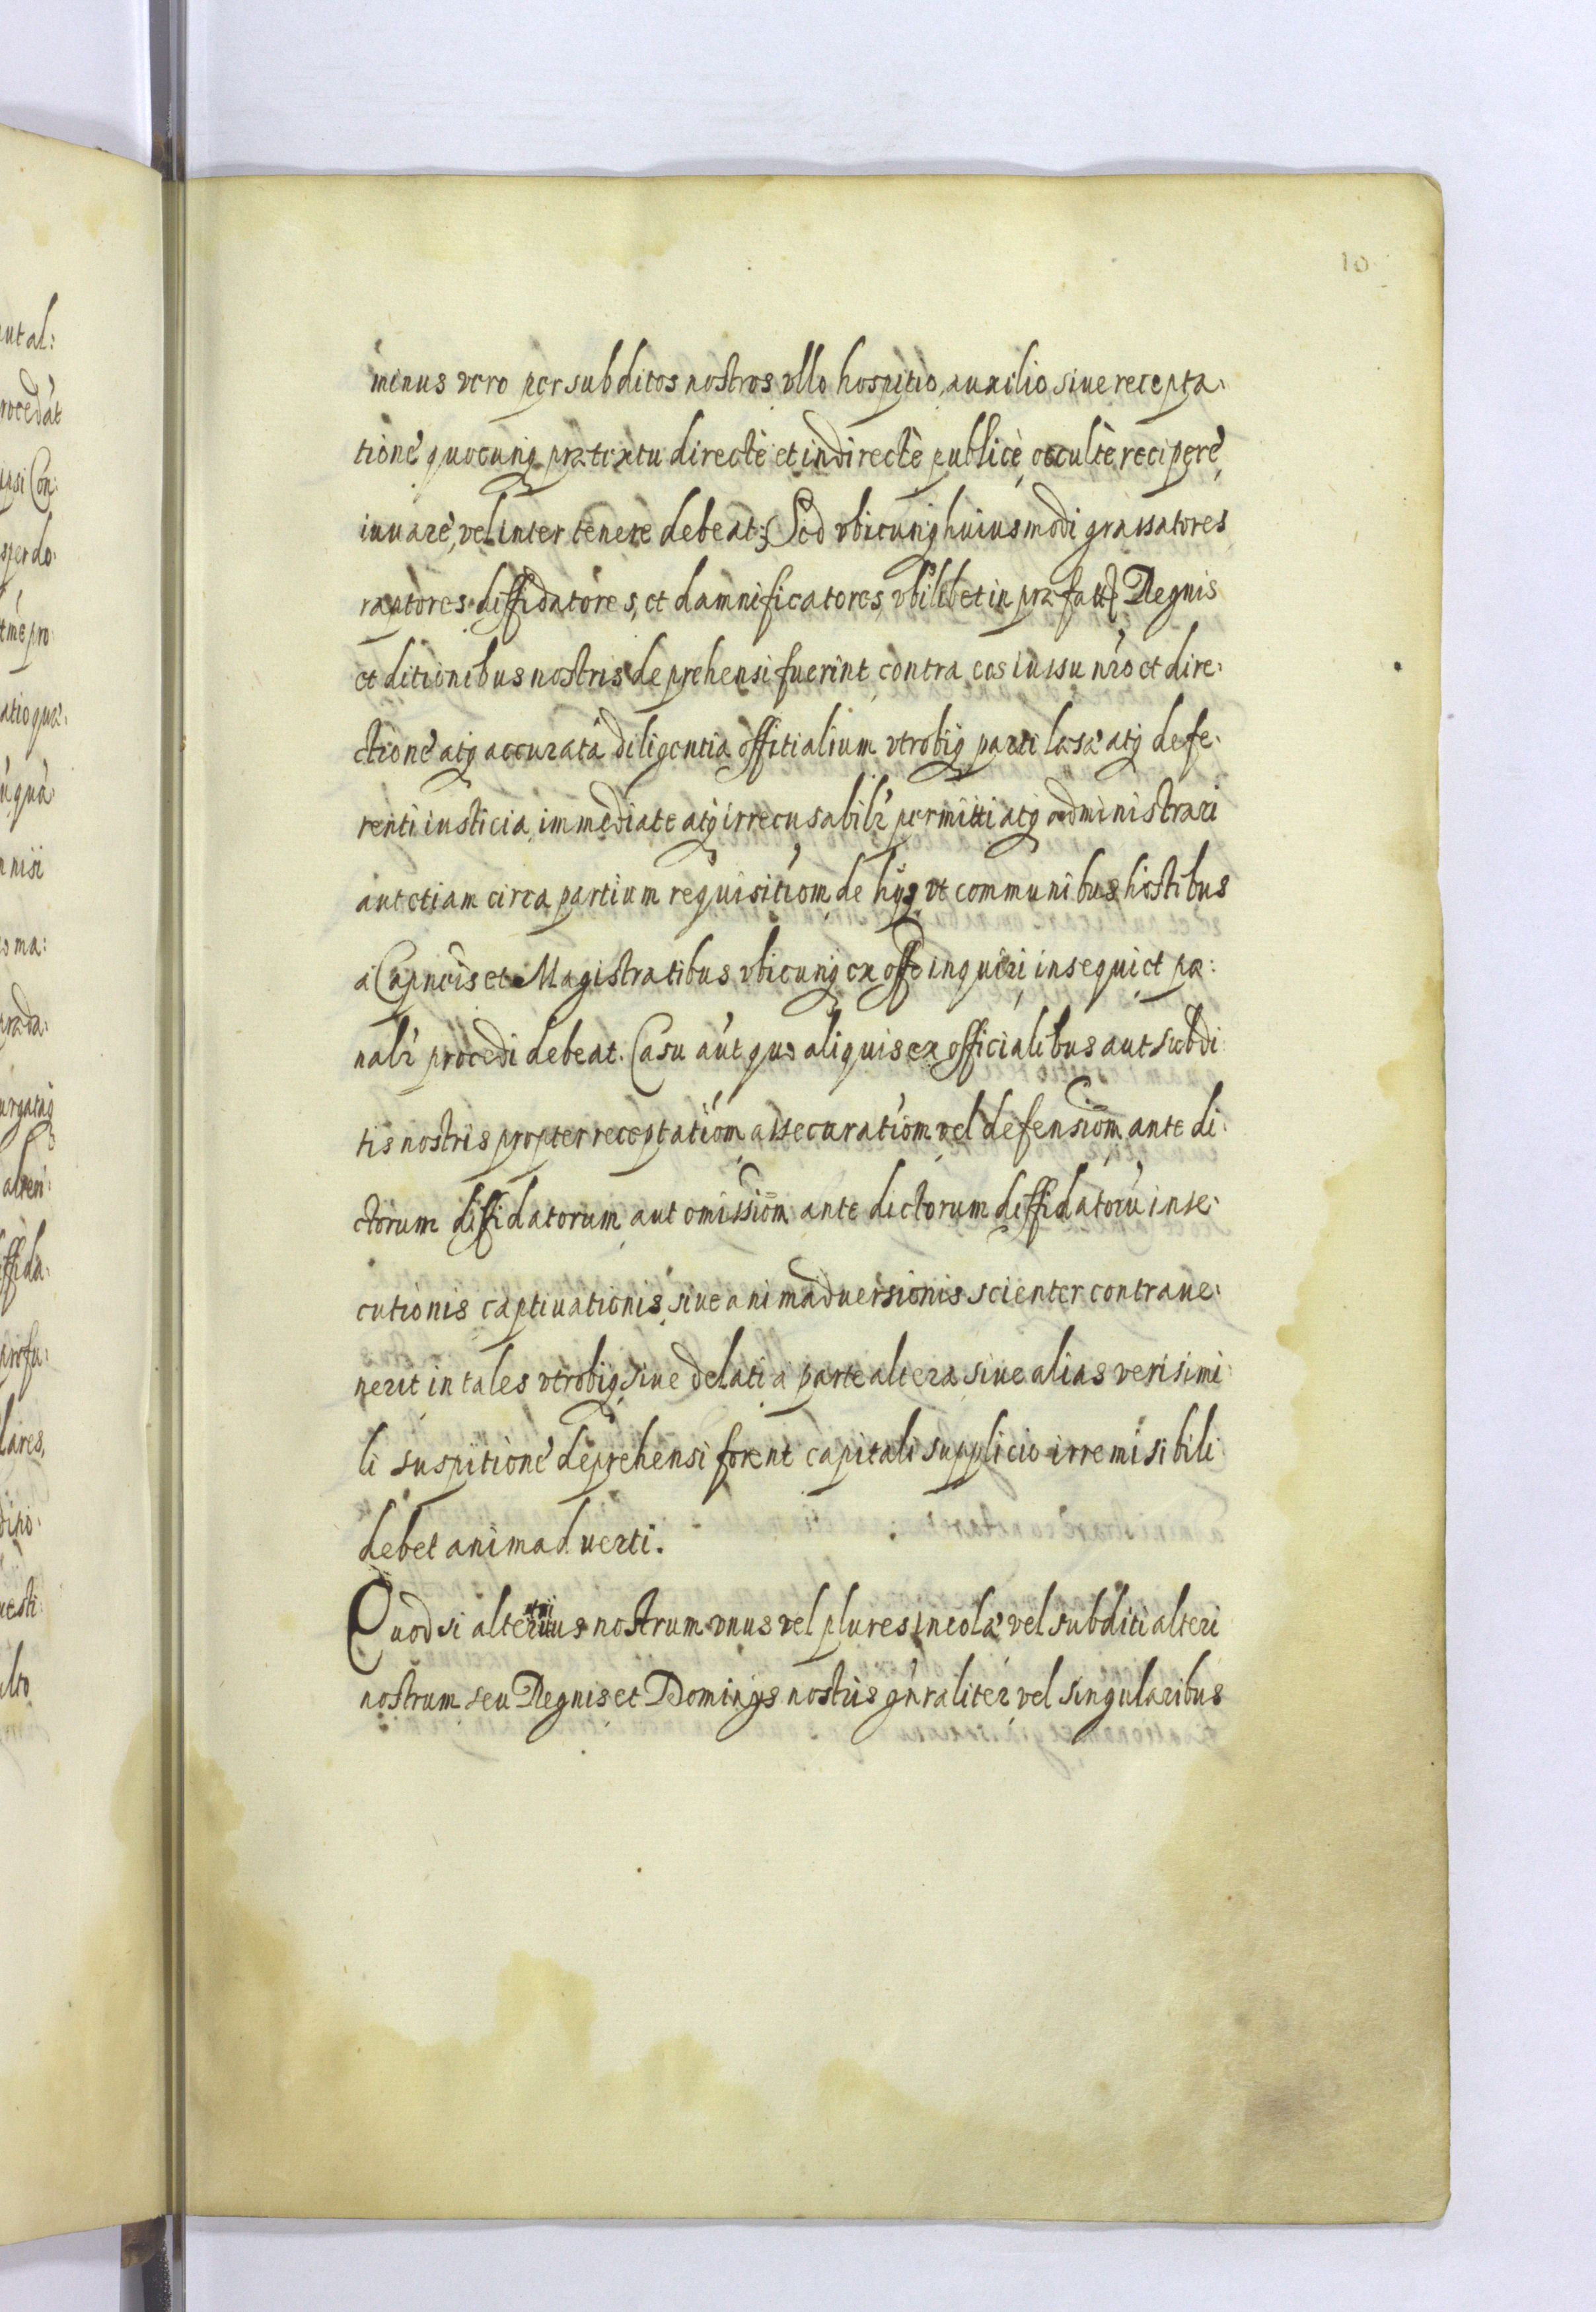 10
minus vero per subditos nostros vllo hospitio, auxilio siue recepta:
tione quocunq prætextu directè et indirectè publicè, occultè recipere,
iuuare, vel inter tenere debeat; Sed vbicunq huiusmodi grassatores
raptores diffidatores, et damnificatores, vbilibet in præfatis Regnis
et ditionibus nostris deprehensi fuerint, contra eos iussu nr̄o et dire:
ctione atq accurata diligentia offitialium vtrobiq parti læsæ atq defe:
renti iusticia immediate atq irrecusabilr permitti atq administrari
aut etiam circa partium requisitiom de hijs vt communibus hostibus
a Capneis et Magistratibus vbicunq ex offo inquiri insequi et pœ:
nalr procedi debeat. Casu aut quo aliquis ex officialibus aut subdi
tis nostris propter receptatiom assecuratiom vel defensiom ante di:
ctorum diffidatorum aut omissiom ante dictorum diffidatorū inse:
cutionis captiuationis, siue animaduersionis scienter contraue:
nerit in tales vtrobiq, siue delati a parte altera siue alias verisimi
li suspitione deprehensi forent capitali supplicio irremisibili
debet animaduerti.
Quod si alterius nostrum vnus vel plures incolæ vel subditi alteri
nostrum seu Regnis et Dominijs nostris gn̄raliter vel singularibus
ut al:
rocedat
ipsi Con:
per do:
tmē pro
atio quæ:
nisi
ma:
præda:
urgatāq
ffida:
profu:
lares,
uesti